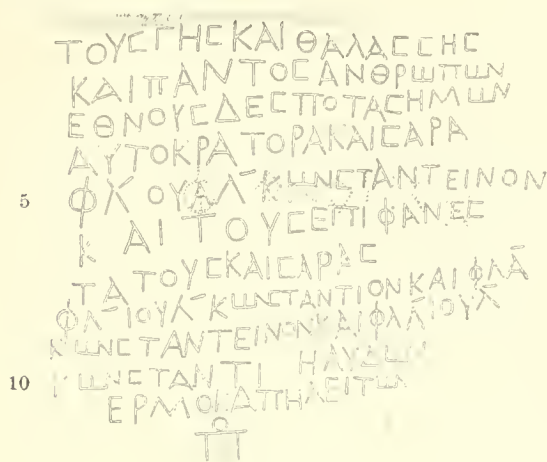 ΤΟΥϹΓΗϹΚΑΙΘΑΛΑϹϹΗϹ
ΚΑΙΠΑΝΤΟϹΑΝΘΡΩΠΩΝ
ΕΘΝΟΥϹΔΕϹΠΟΤΑϹΗΜΩΝ
ΑΥΤΟΚΡΑΤΟΡΑΚΑΙϹΑΡΑ
5 ΦΛΟΥΑΛ ΚΩΝϹΤΑΝΤΕΙΝΟΝ
ΚΑΙΤΟΥϹΕΠΙΦΑΝΕϹ
ΤΑΤΟΥϹΚΑΙϹΑΡΑϹ
ΦΛ ΙΟΥΛ ΚΩΝϹΤΑΝΤΙΟΝΚΑΙΦΛΑ
ΚΩΝϹΤΑΝΤΕΙΝΟΝΚΑΙΦΛΑΙΟΥΛ
10 ΚΩΝϹΤΑΝΤΙ
ΕΡΜΟΚΑΠΗΛΕΙΤΩΝ